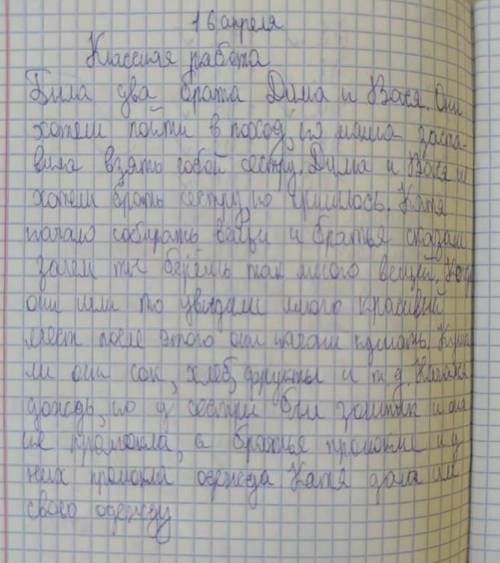 16 апреля
Классная работа
Била два брата Дима и Вася. Они
хотели пойти в поход, но мама заста-
вила взять собой сестру. Дима и Вася н
хотели брать сестру, но пришлось. Катя
начало собирать вещи и братья сказали
зачем ты берёшь так много вещей. Когда
они шли то увидели много красивый
мест после этого они начали кушать. Кушали
ли они сок, хлеб, фрукты и т д. Начался
дождь, но у сестры был зонтик и она
не промокла, а братья промокли и у
них промокла одежда Катя дала им
свою одежду